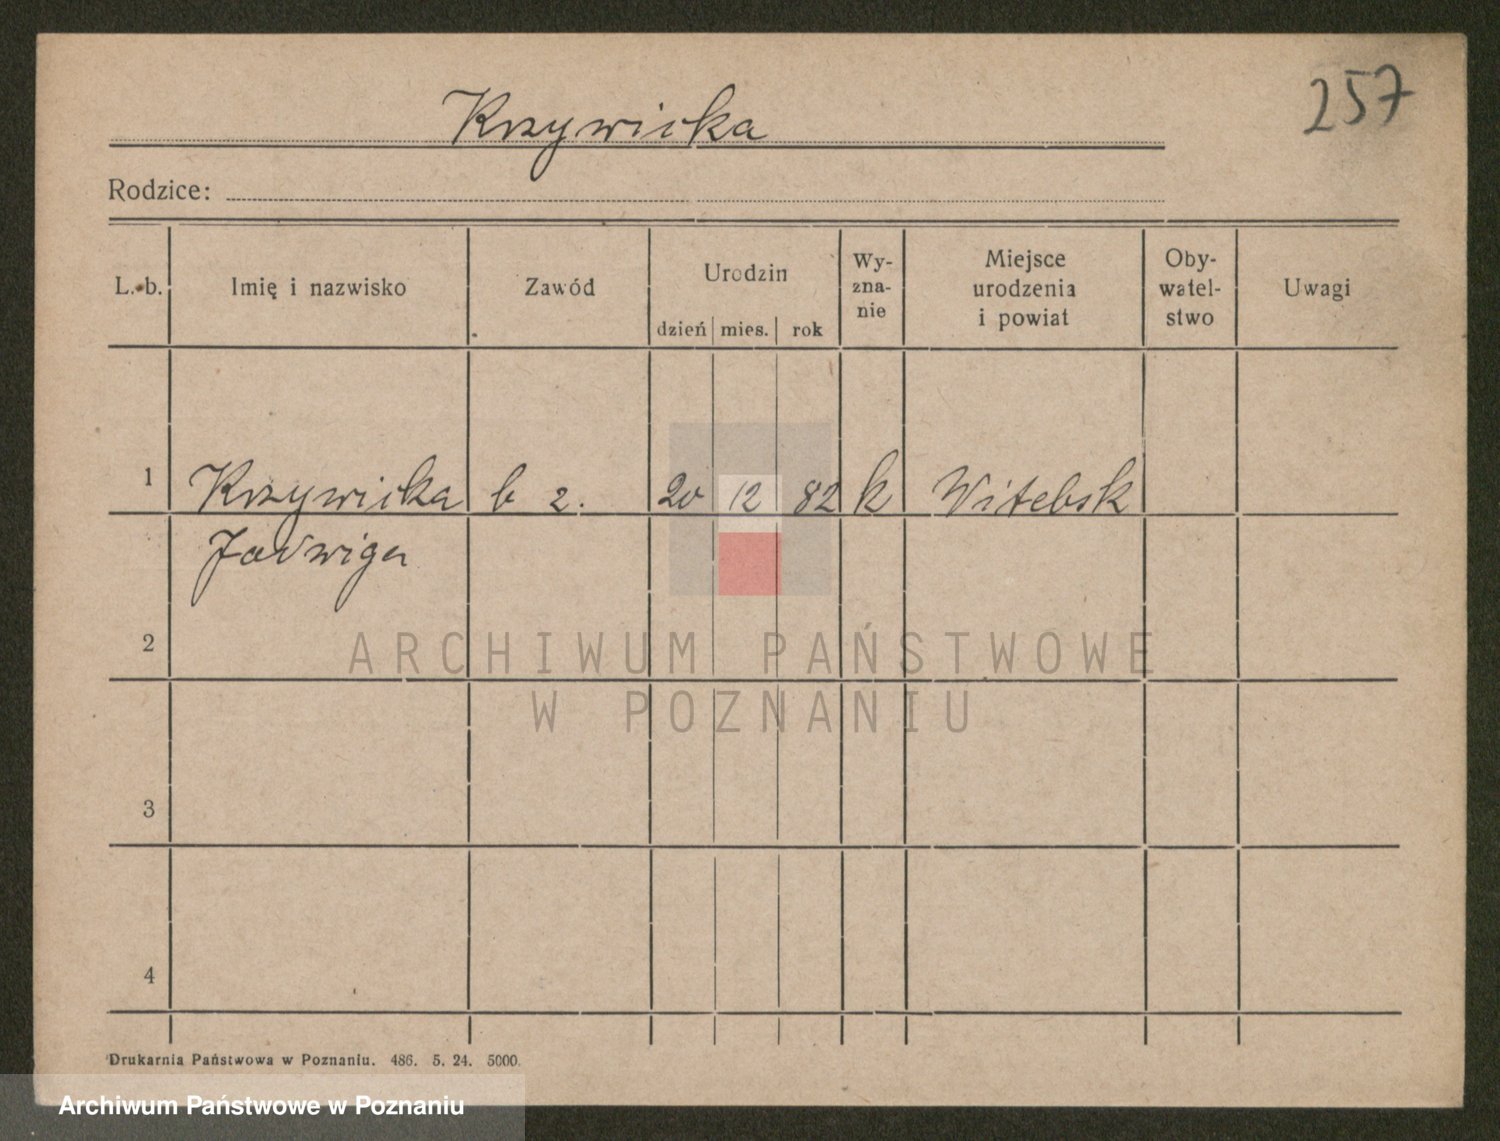 257
Krzywicka
Rodzice:
L. b.
Imię i nazwisko
Zawód
Urodzin
dzień mies. rok
Wy-
zna-
nie
Miejsce
urodzenia
i powiat
Oby-
watel-
stwo
Uwagi
1 Krzywicka b z. 20 12 82 k Witebsk
Jadwiga
2
ARCHIWUM PAŃSTWOWE
W POZNANIU
3
4
Drukarnia Państwowa w Poznaniu. 486. 5. 24. 5000.
Archiwum Państwowe w Poznaniu